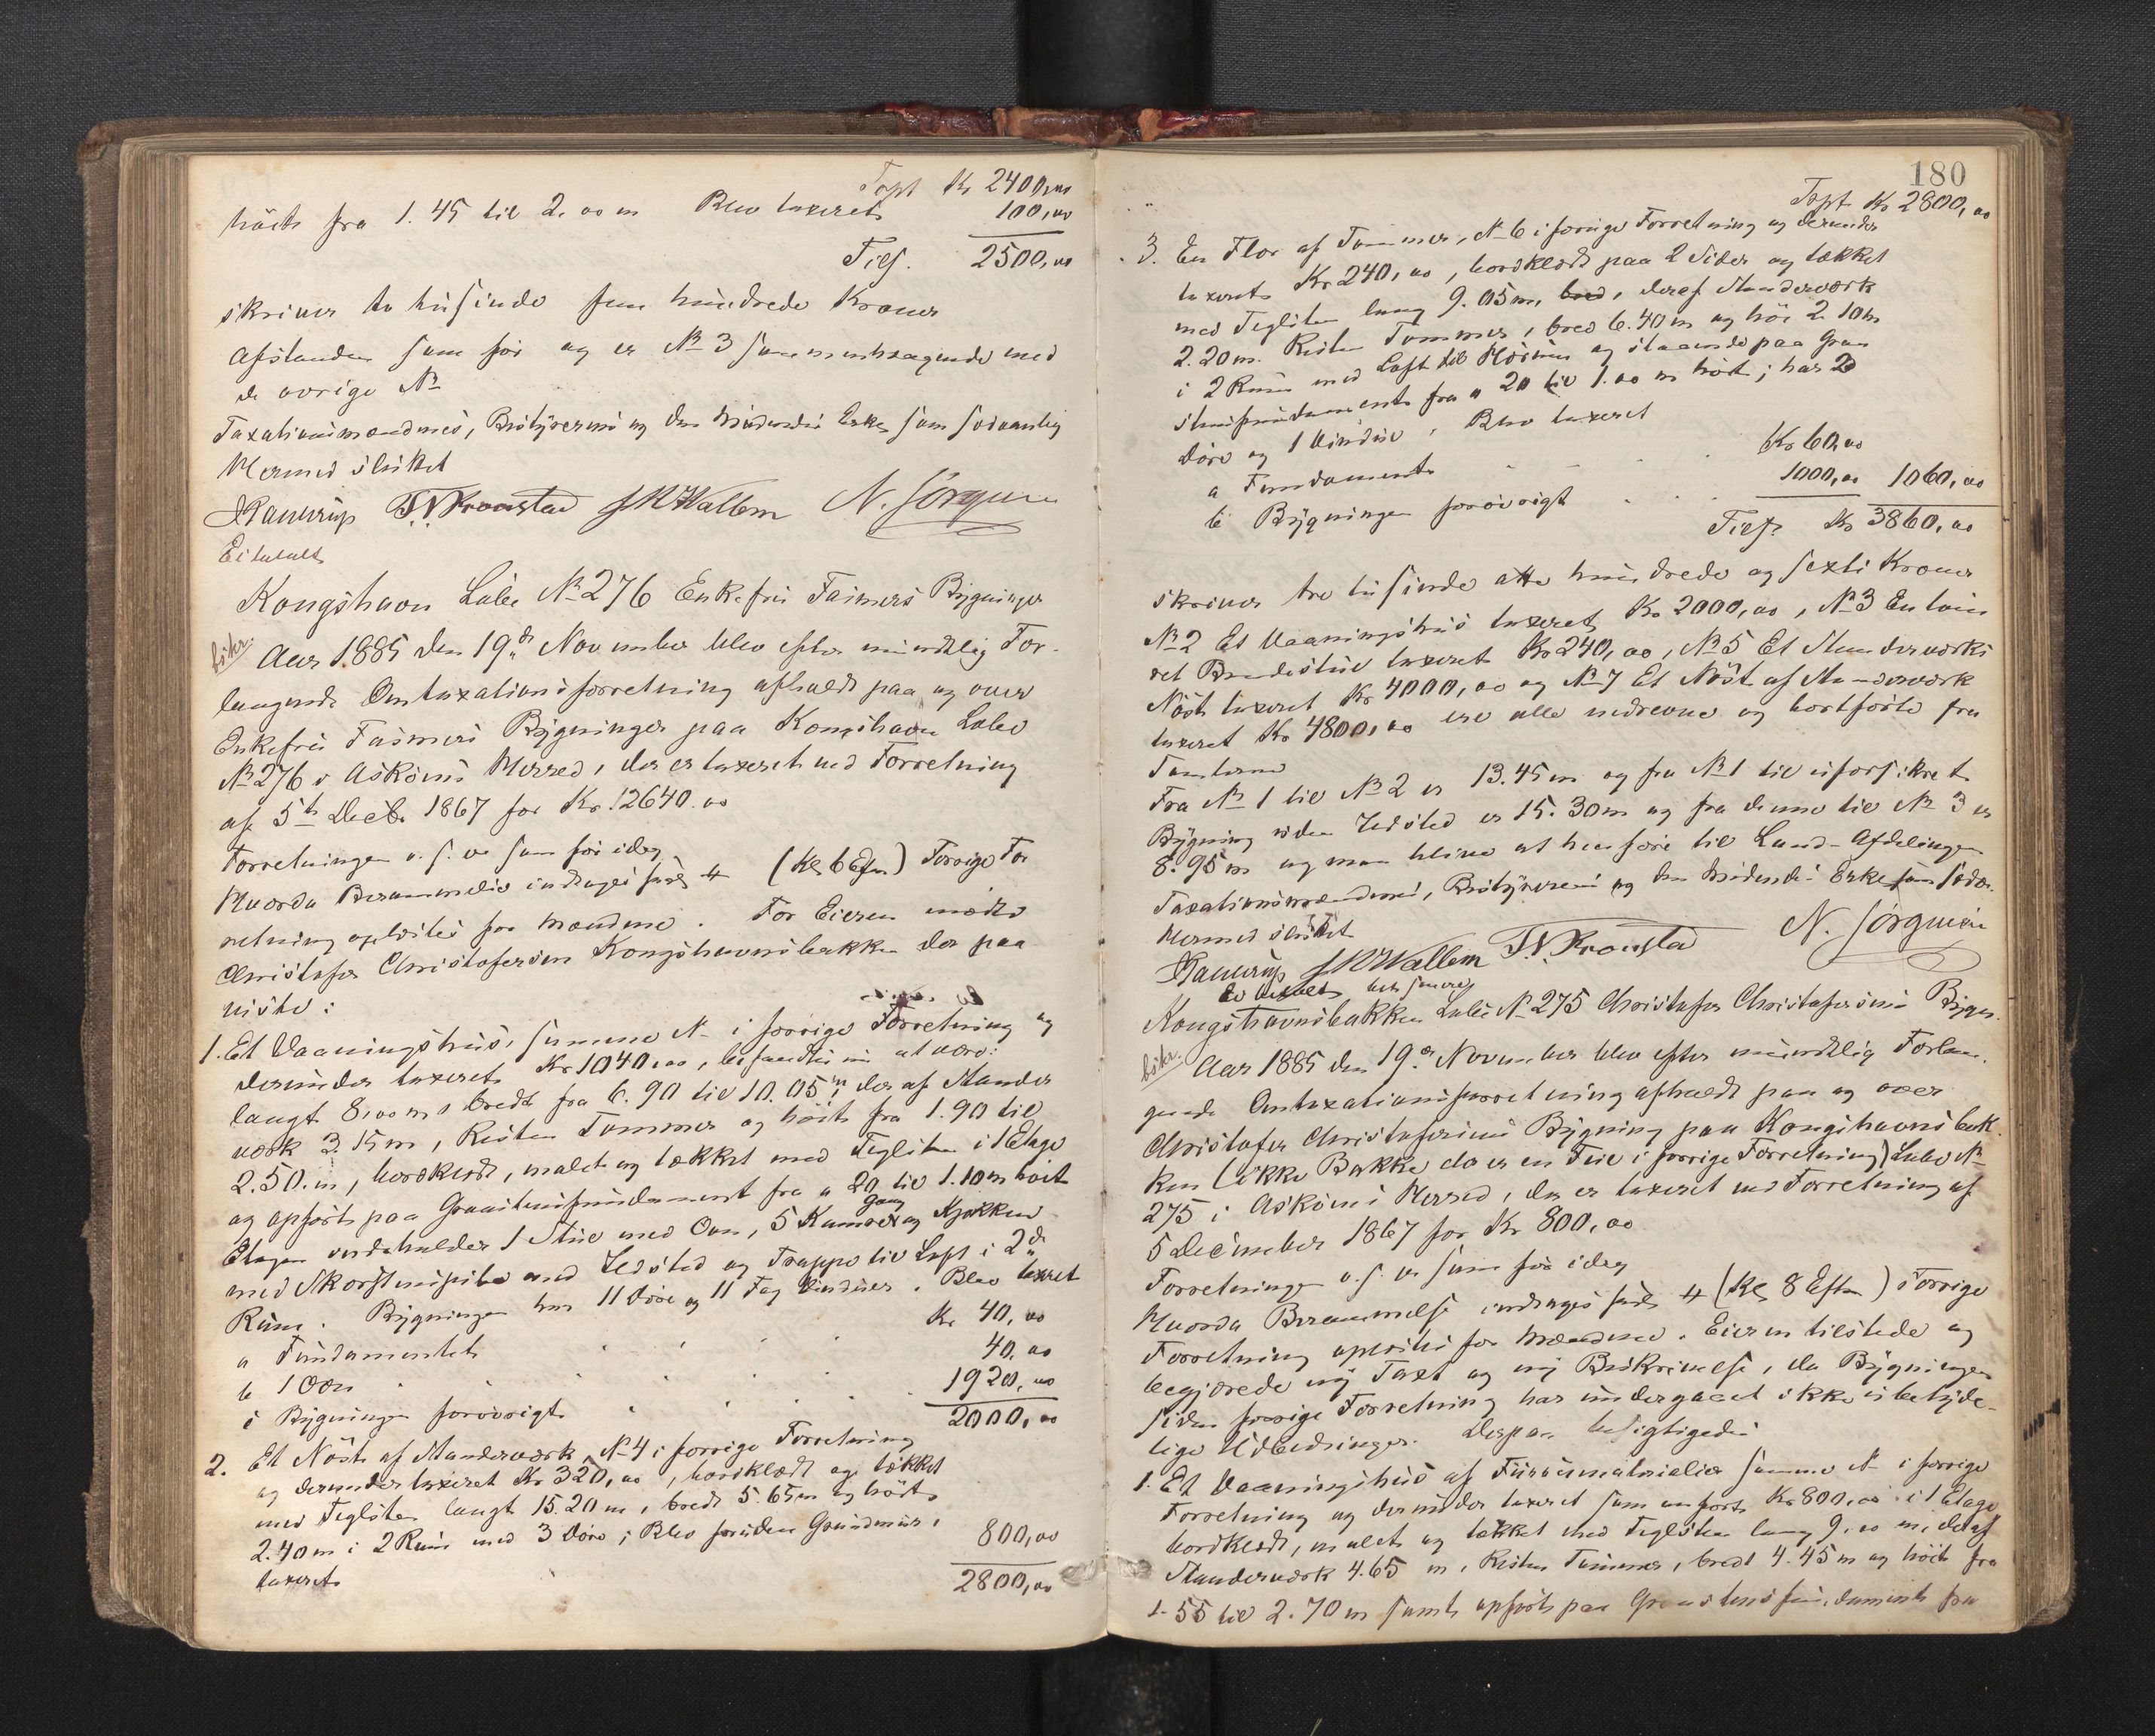 Tapt Kr 2400,00
höit fra 1.45 til 2.00 m Blev taxeret 100,00
Tils. 2500,00
skriver to tusinde fem hundrede Kroner
Afstanden som før og er No 3 sammenhængende med
de øvrige No
Taxationsmændenes, Bestyrerens og den bridendes Eske som sædvanlig
Hermed sluttet
T. N. Kronstad J R Wallem N. Sörguin
Ei betalt
Kongshavn Löbe No 276 Enkefru Fasmers Bygninger
Aar 1885 den 19de November blev efter mundtlig For-
langende Omtaxationsforretning afholdt paa og over
Enkefru Fasmers Bygninger paa Kongshavn Löbe
No 276 i Asköens Herred, der er taxeret ved Forretning
af 5te Decbr 1867 for Kr. 12640.00
Forretningen o. s. v. som før idag
Hvorda Berammelse indtages (Kl 6 Efm) Forrige For
retning oplæstes for Mændene. For Eieren mødte
Christofer Christofersen Kongshavnsbakken der paa
viste:
1. Et Vaaningshus, samme No i forrige Forretning og
derunder taxeret Kr 1040,00, befandtes nu at være:
langt 8,00 m, bredt fra 6.90 til 10.05 m, der af Stander
værk 3.15 m, Resten Tømmer og höit fra 1.90 til
2.50 m, bordklædt, malet og tækket med Teglsten i 1 Etage
og opført paa Graastensfundament fra 0.20 til 1.10 m höit
Etagen indeholder 1 Stue med Ovn, 5 Kamre, Gang og Kjøkken
med Skorstenspibe med Ildsted og Trappe til Loft i 2de
Rum. Bygningen har 11 Døre og 11 Fag Vinduer. Blev taxeret
a Fundamentet Kr. 40,00
b 1 Ovn 40,00
c Bygningen forøvrigt 1920,00
2000,00
2. Et Nøst af Standerværk, No 4 i forrige Forretning
og derunder taxeret Kr 320,00, bordklædt og tækket
med Teglsten langt 15.20 m, bredt 5.65 m og höit
2.40 m i 2 Rum med 3 Døre; Blev foruden Grundmur,
taxeret 800,00
2800,00
180
Tapt Kr 2800,00
3. En Flor af Tømmer, No 6 i forrige Forretning og derunder
taxeret Kr 240,00, bordklædt paa 2 Sider og tækket
med Teglsten lang 9.05 m, bred, deraf Standerværk
2.20 m. Resten Tømmer, bred 6.40 m og höi 2.10 m
i 2 Rum med Loft til Hörum og staaende paa Graa
stensfundament fra 0.20 til 1.00 m höit; har 2
Døre og 1 Vindue. Blev taxeret
a Fundament Kr 60,00
b Bygningen forøvrigt 1000,00 1060,00
Tils. Kr 3860,00
skriver tre tusinde otte hundrede og sexti Kroner
No 2 Et Vaaningshus taxeret Kr. 2000,00, No 3 En tøm
ret Brendestue taxeret Kr 240,00, No 5 Et Standerværks
Nøst taxeret Kr 4000,00 og No 7 Et Nøst af Standerværk
taxeret Kr 4800,00 ere alle nedrevne og bortførte fra
Tomterne
Fra No 1 til No 2 er 13.45 m og fra No 1 til uforsikret
Bygning uden Ildsted er 15.30 m og fra denne til No 3 er
8.95 m og man blive at henføre til Land-Afdelingen
Taxationsmændenes, Bestyrerens og den bridendes Eske som sædv.
Hermed sluttet
J R Wallem T. N. Kronstad N. Sörguin
Er betalt
Kongshavnsbakken Löbe No 275 Christofer Christofersens Bygn.
Aar 1885 den 19de November blev efter mundtlig Forlan-
gende Omtaxationsforretning afholdt paa og over
Christofer Christofersens Bygning paa Kongshavnsbak
ken (ikke Bakke da er en Feil i forrige Forretning) Löbe No
275 i Asköens Herred, der er taxeret ved Forretning af
5 December 1867 for Kr. 800,00
Forretningen o. s. v. som før idag
Hvorda Berammelse indtages (Kl 8 Eftm) Forrige
Forretning oplæstes for Mændene. Eieren tilstede og
begjærede ny Taxt og ny Beskrivelse, da Bygningen
siden forrige Forretning har undergaaet ikke ubetyde-
lige Udbedringer. Derpaa besigtigedes
1. Et Vaaningshus af Furumaterialier samme No i forrige
Forretning og derunder taxeret som anført Kr 800,00 i 1 Etage
bordklædt, malet og tækket med Teglsten lang 9,00 m, deraf
Standerværk 4.65 m, Resten Tømmer, bredt 4.45 m og höit fra
1.55 til 2.70 m samt opført paa Graastensfundament fra